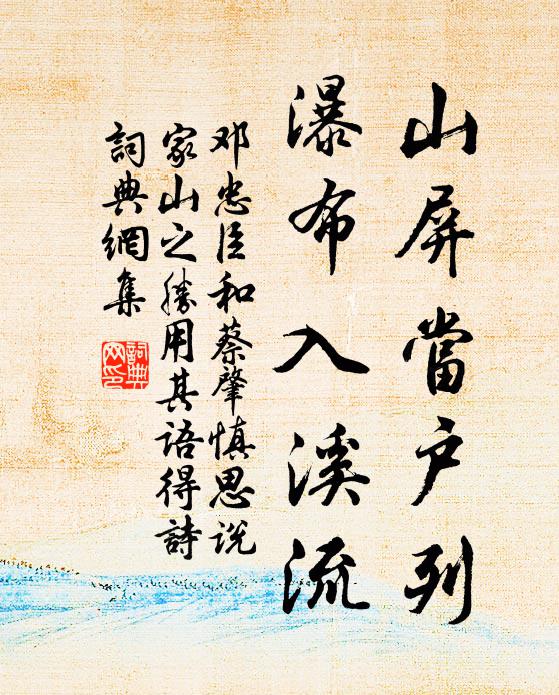 山屏當户列
瀑布入溪流
邓忠臣和蔡肇慎思说
家山之勝用其语得詩
詞典網集
詞典
网印